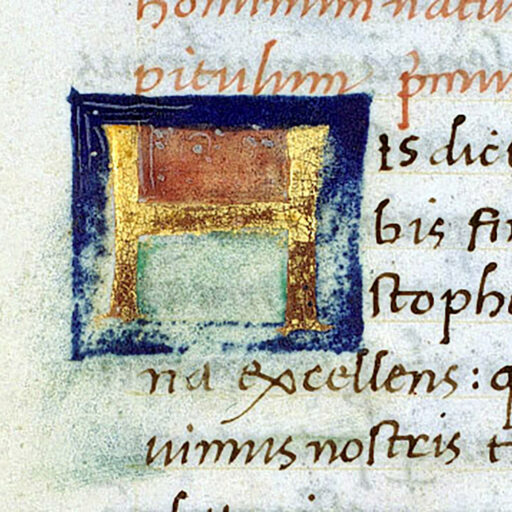 hominum natu
pitulum prmu
H is dic
bis fin
stoph
na excellens : q
uimus nostris t